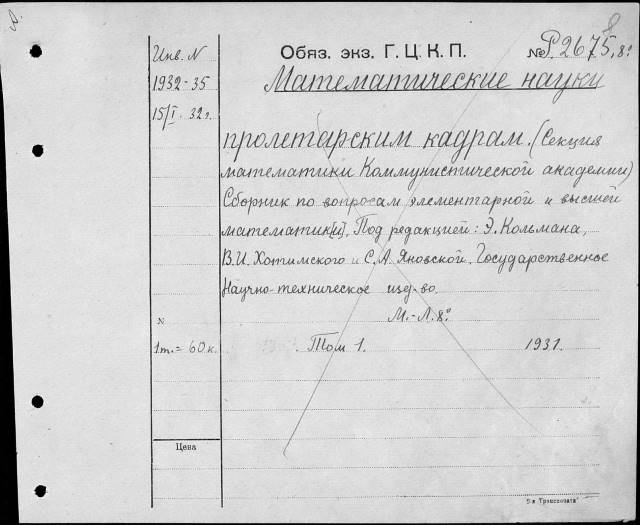 Инв. N Обяз. экз. Г. Ц. К. П. № P2675,8°
1932-35 Математические науки
15/I. 32 г.
пролетарским кадрам. (Секция
математики Коммунистической академии)
Сборник по вопросам элементарной и высшей
математик[и]. Под редакцией: Э. Кольмана,
В.И. Хотимского и С.А. Яновской. Государственное
Научно-техническое изд-во.
N М.-Л. 8°
1т. = 60 к. Том 1. 1931.
Цена